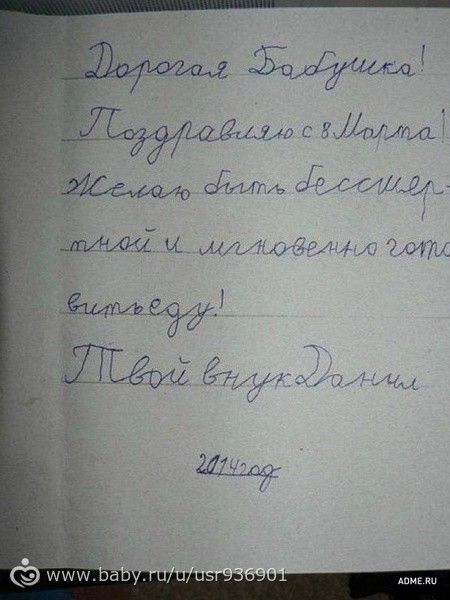 Дорогая Бабушка!
Поздравляю с 8 Марта!
Желаю быть бессмер-
тной и мгновенно гото
вить еду!
Твой внук Данил
2014 год
www.baby.ru/u/usr936901
ADME.RU